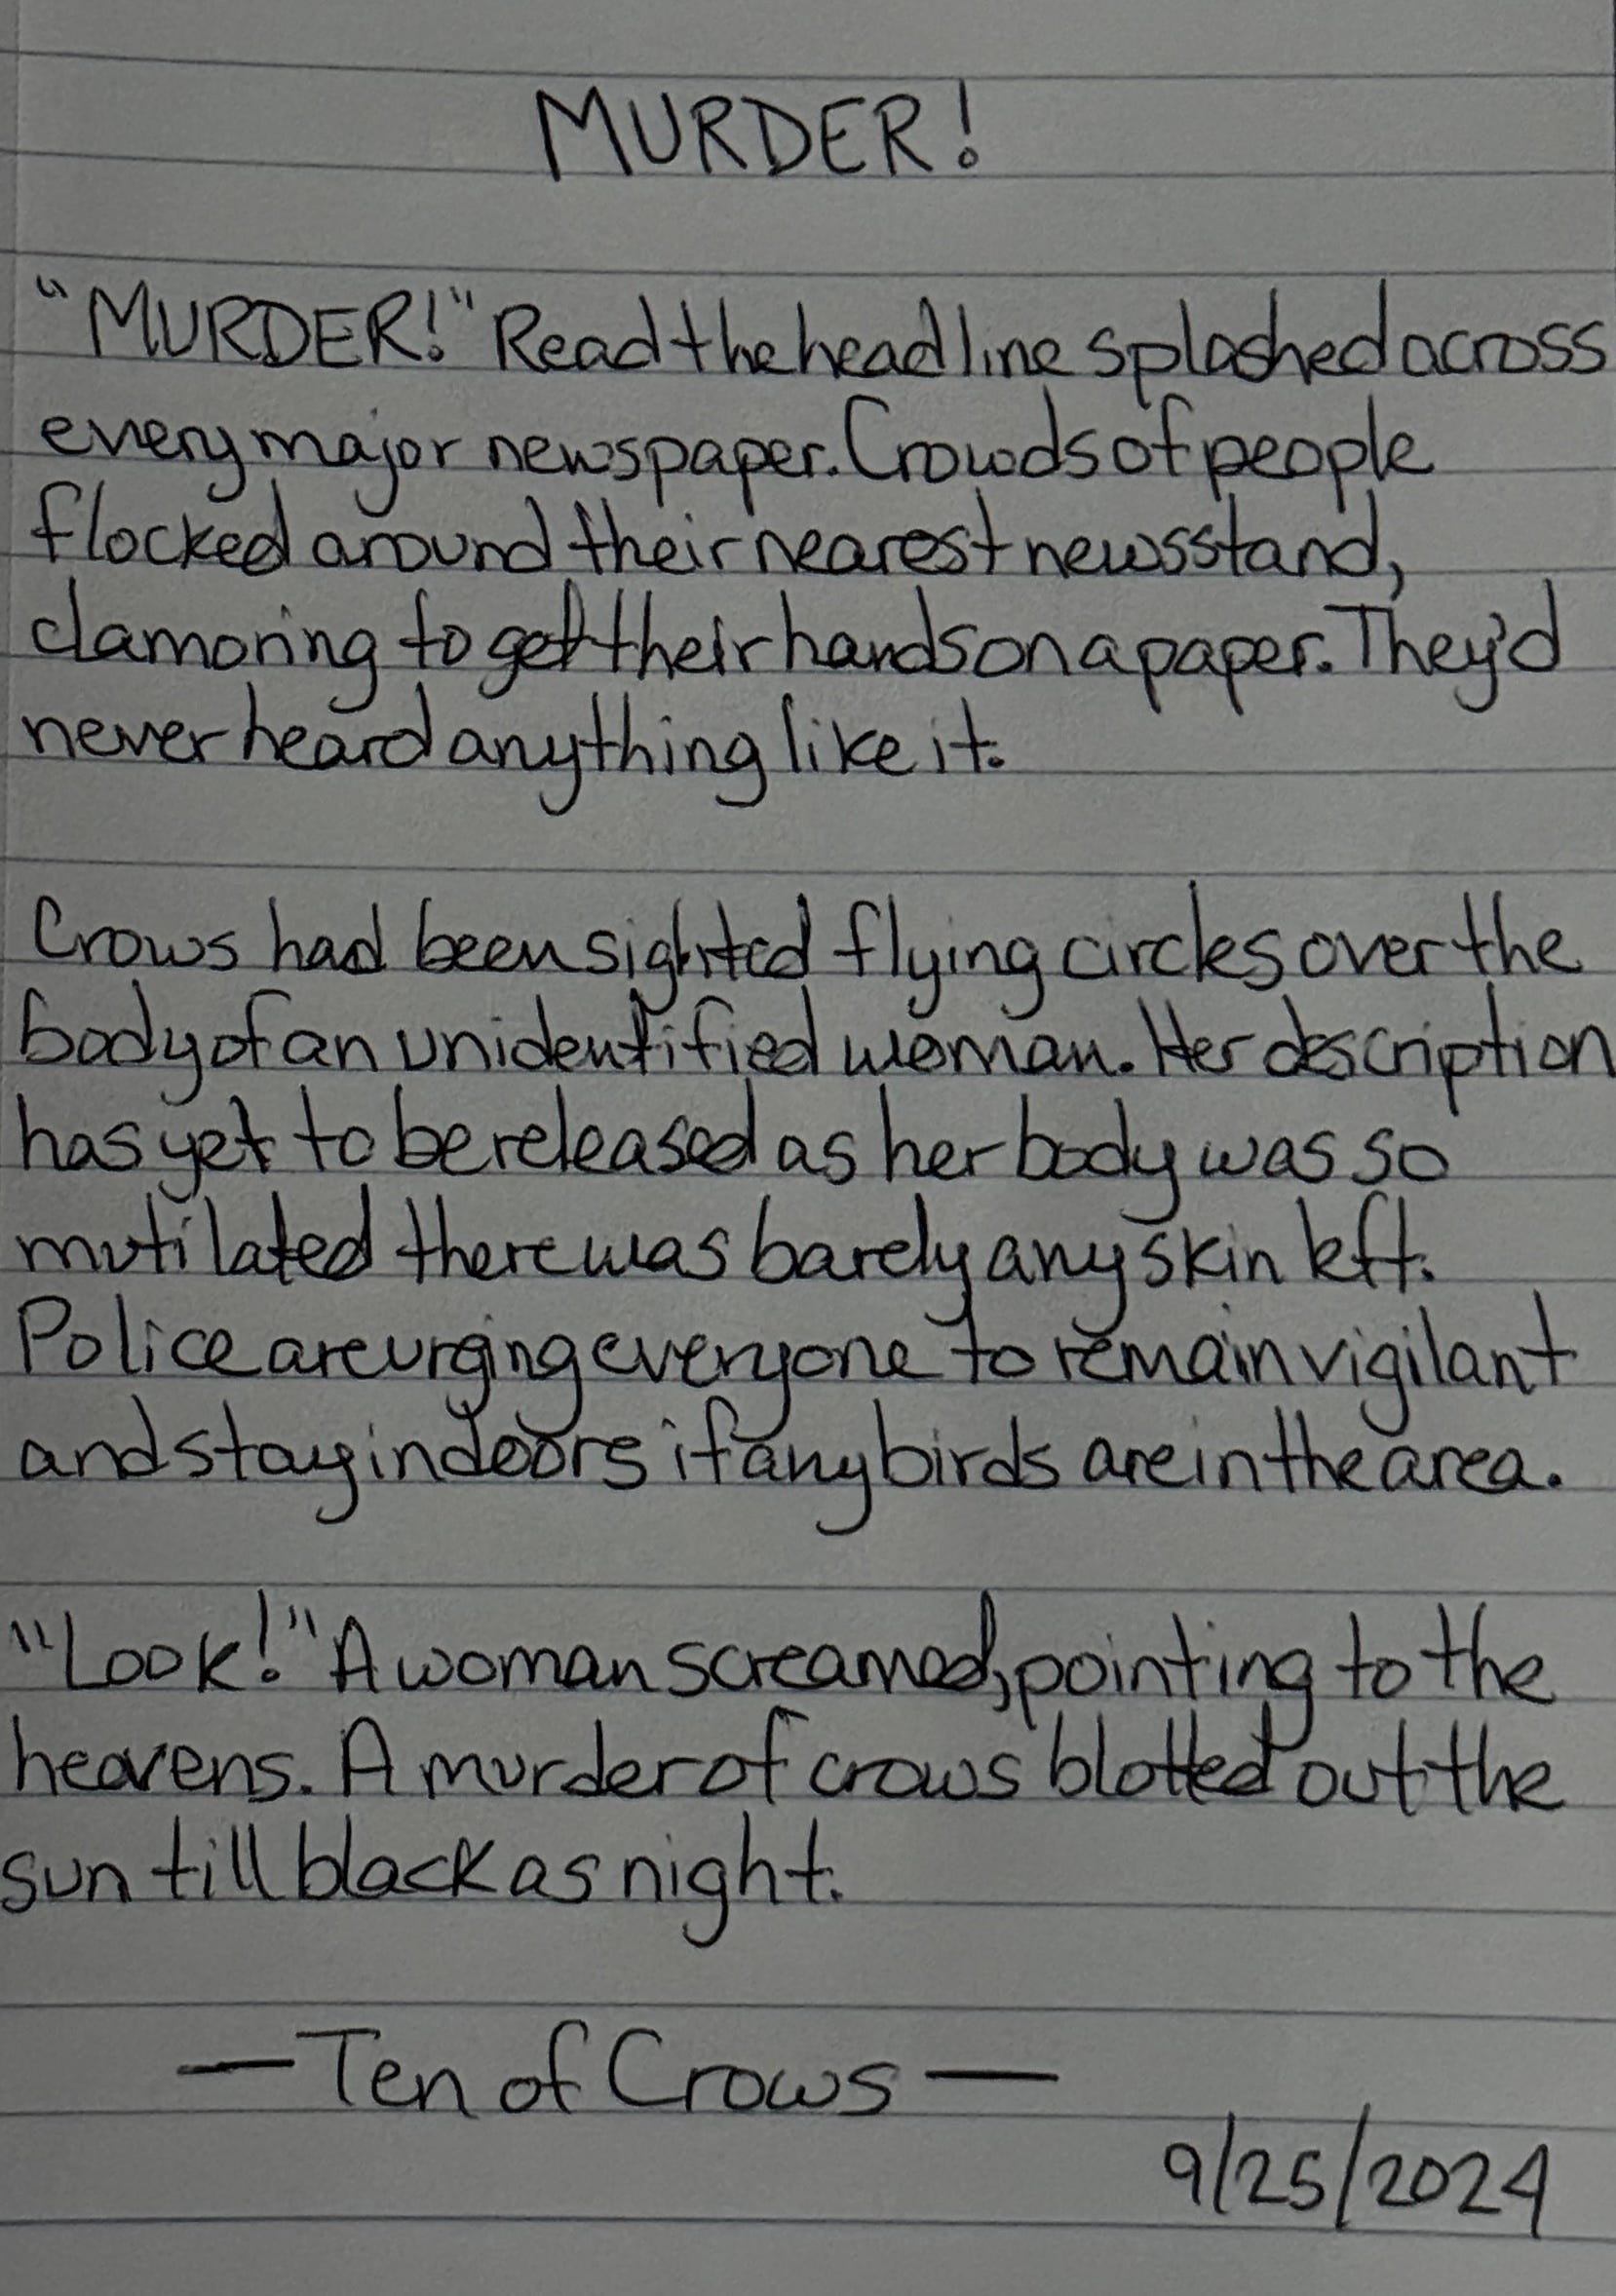 MURDER!
"MURDER!" Read the headline splashed across
every major newspaper. Crowds of people
flocked around their nearest newsstand,
clamoring to get their hands on a paper. They'd
never heard anything like it.
Crows had been sighted flying circles over the
body of an unidentified woman. Her description
has yet to be released as her body was so
mutilated there was barely any skin left.
Police are urging everyone to remain vigilant
and stay indoors if any birds are in the area.
"Look!" A woman screamed, pointing to the
heavens. A murder of crows blotted out the
sun till black as night.
— Ten of Crows —
9/25/2024